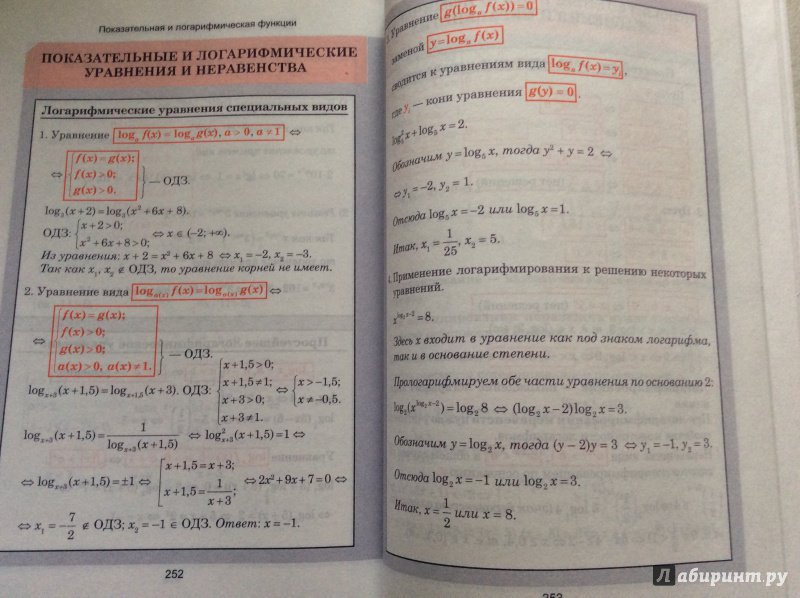 Показательная и логарифмическая функции
ПОКАЗАТЕЛЬНЫЕ И ЛОГАРИФМИЧЕСКИЕ
УРАВНЕНИЯ И НЕРАВЕНСТВА
Логарифмические уравнения специальных видов
1. Уравнение logₐ f(x) = logₐ g(x), a > 0, a ≠ 1 ⇔
⇔ f(x) = g(x);
f(x) > 0;
g(x) > 0.
— ОДЗ.
log₃(x+2) = log₃(x²+6x+8).
ОДЗ: x+2>0;
x²+6x+8>0;
⇔ x ∈ (–2; +∞).
Из уравнения: x + 2 = x² + 6x + 8 ⇔ x₁ = –2, x₂ = –3.
Так как x₁, x₂ ∉ ОДЗ, то уравнение корней не имеет.
2. Уравнение вида log_{a(x)} f(x) = log_{a(x)} g(x) ⇔
⇔ f(x) = g(x);
f(x) > 0;
g(x) > 0;
a(x) > 0, a(x) ≠ 1.
— ОДЗ.
log_{x+3}(x+1,5) = log_{x+1,5}(x+3). ОДЗ: x+1,5>0;
x+1,5≠1;
x+3>0;
x+3≠1.
⇔ x>–1,5;
x≠–0,5.
log_{x+3}(x+1,5) = 1/log_{x+3}(x+1,5) ⇔ log²_{x+3}(x+1,5) = 1 ⇔
⇔ log_{x+3}(x+1,5) = ±1 ⇔ x+1,5 = x+3;
x+1,5 = 1/(x+3);
⇔ 2x²+9x+7=0 ⇔
⇔ x₁ = –7/2 ∉ ОДЗ; x₂ = –1 ∈ ОДЗ. Ответ: x = –1.
252
Уравнение g(logₐ f(x)) = 0
заменой y = logₐ f(x)
сводится к уравнениям вида logₐ f(x) = yᵢ,
где yᵢ — кони уравнения g(y) = 0.
log₅²x + log₅x = 2.
Обозначим y = log₅ x, тогда y² + y = 2 ⇔
⇔ y₁ = –2, y₂ = 1.
Отсюда log₅ x = –2 или log₅ x = 1.
Итак, x₁ = 1/25, x₂ = 5.
4. Применение логарифмирования к решению некоторых
уравнений.
x^{log₂x–2} = 8.
Здесь x входит в уравнение как под знаком логарифма,
так и в основание степени.
Прологарифмируем обе части уравнения по основанию 2:
log₂(x^{log₂x–2}) = log₂8 ⇔ (log₂x–2)log₂x = 3.
Обозначим y = log₂x, тогда (y–2)y = 3 ⇔ y₁ = –1, y₂ = 3.
Отсюда log₂x = –1 или log₂x = 3.
Итак, x = 1/2 или x = 8.
253
Лабиринт.ру